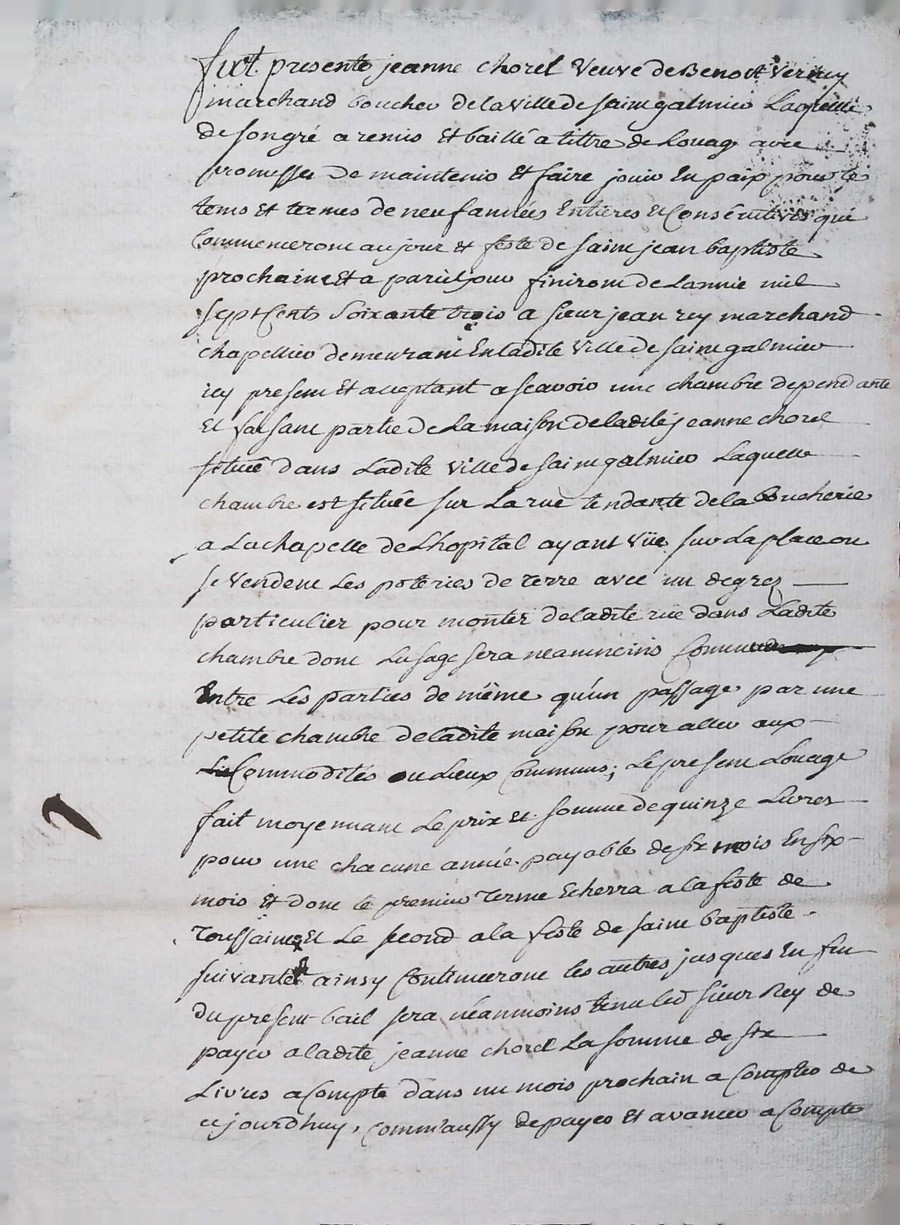 fut presente jeanne chorel veuve de Benoit Verney
marchand boucher de la ville de saint galmier Laquelle
de son gré a remis et baillé a tittre de Louage avec
promesse de maintenir et faire jouir en paix pour le
tems et termes de neuf années Entieres et Consécutives qui
Commenceront au jour et feste de saint jean baptiste
prochaine et a pareil jour finiront de Lannée mil
sept Cents soixante trois a sieur jean rey marchand
chapellier demeurant En ladite ville de saint galmier
icy present et acceptant a scavoir une chambre dependante
Et faisant partie de La maison de ladite jeanne chorel
située dans Ladite ville de saint galmier Laquelle
chambre est située sur La rue tendante de la Boucherie
a La chapelle de Lhopital ayant vüe sur La place ou
se vendent Les poteries de terre avec un degrez
particulier pour monter de ladite rue dans Ladite
chambre dont Lusage sera néanmoins Commun
Entre Les parties de même qu'un passage par une
petite chambre de ladite maison pour aller aux
Commodités ou Lieux Communs; Le present Louage
fait moyennant Le prix et somme de quinze Livres
pour une chacune année payable de six mois En six
mois et dont le premier terme Echerra a la feste de
Toussaint Et Le second a la feste de saint baptiste
suivante ainsy Continueront les autres jusques En fin
du present bail sera néanmoins tenu led sieur Rey de
payer a ladite jeanne chorel La somme de six
Livres a Compte dans un mois prochain a Compter de
cejourdhuy, comm'aussy de payer et avancer a Compte